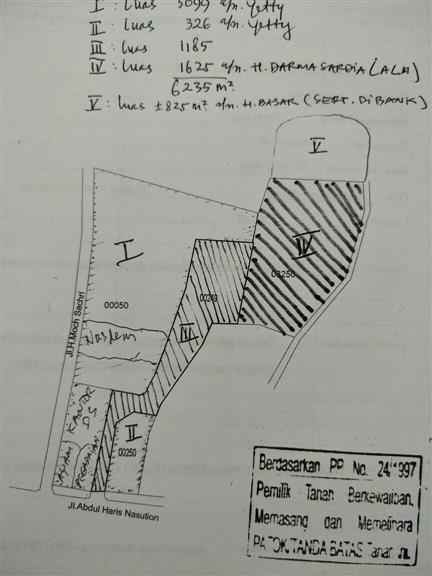 I : Luas 3099 a/n. Yetty
II : Luas 326 a/n. Yetty
III : Luas 1185
IV : Luas 1625 a/n. H. DARMA SARDIA (ALM)
6235 m²
V : Luas ± 825 m² a/n. H. BASAR (SERT. DI BANK)
V
IV
03250
I
00050
III
Jl.H.Moch Sachri
KANTOR
DS
II
00250
Jl.Abdul Haris Nasution
Berdasarkan PP No. 24/1997
Pemilik Tanah Berkewajiban,
Memasang dan Memelihara
PATOK/TANDA BATAS Tanah